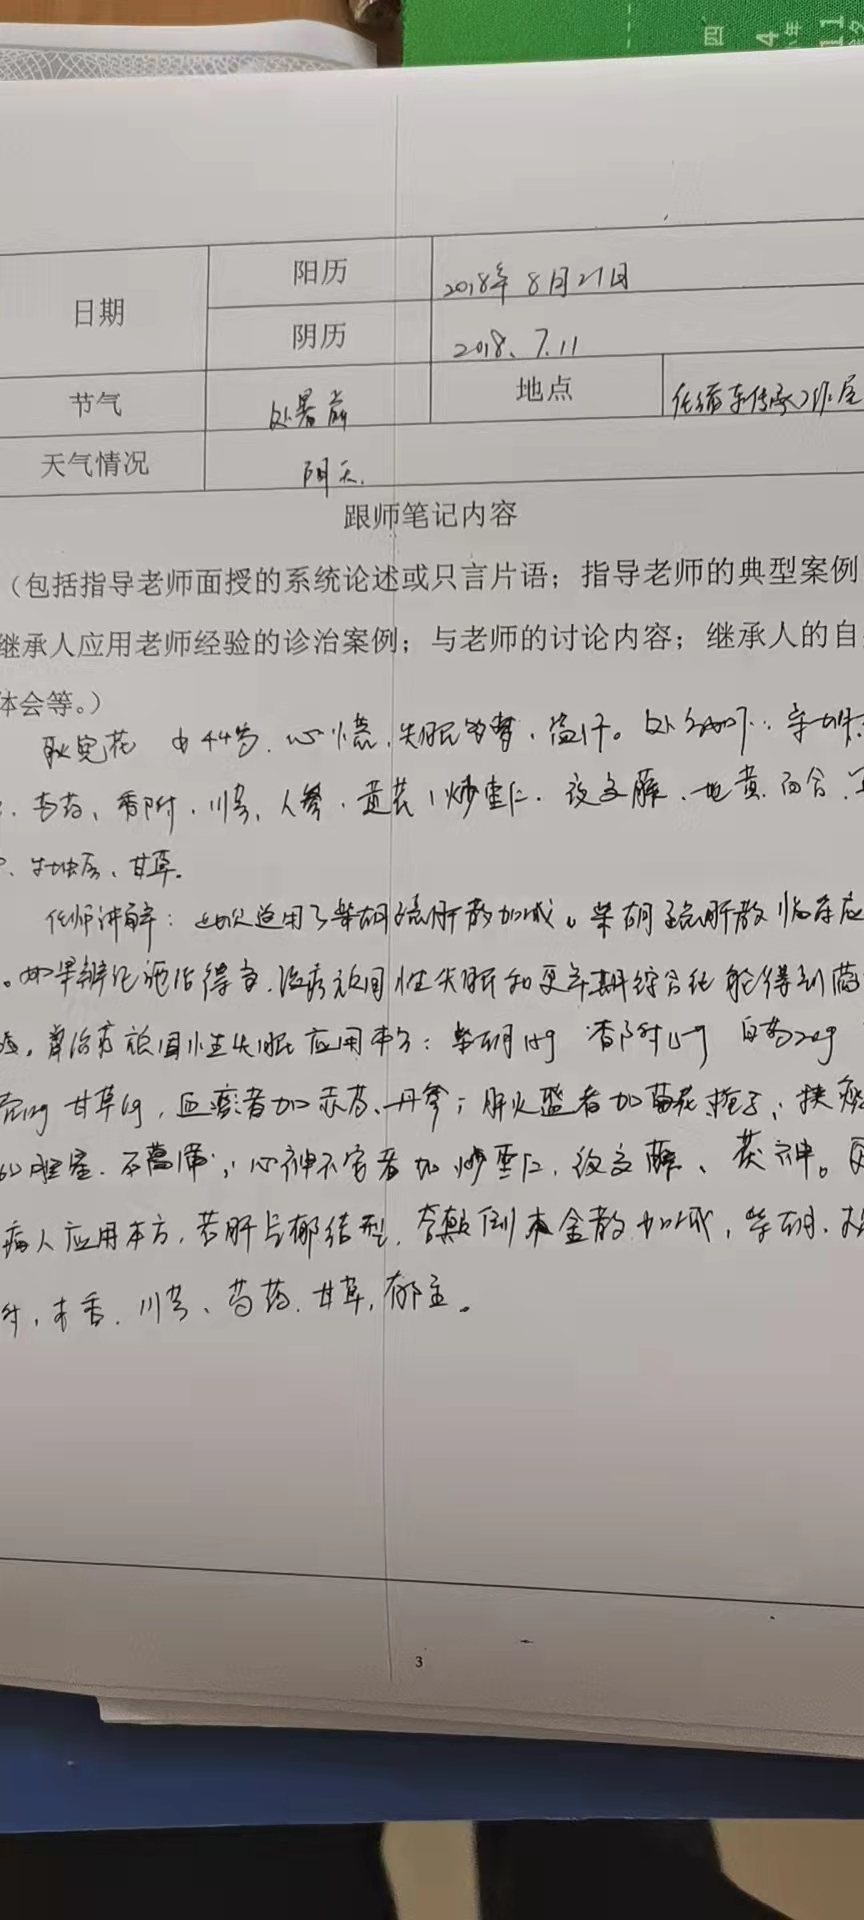 四 4 11
日期 阳历 2018年8月21日
阴历 2018.7.11
节气 处暑前 地点 任 传承工作室
天气情况 阴天.
跟师笔记内容
（包括指导老师面授的系统论述或只言片语；指导老师的典型案例
继承人应用老师经验的诊治案例；与老师的讨论内容；继承人的自
体会等。）
花 女 44岁. 心慌, 失眠多梦, 盗汗。处方如下: 柴胡
芍药、香附、川芎、人参、黄芪、炒枣仁、夜交藤、地黄、百合、
甘草.
任师讲解: 此次选用了柴胡疏肝散加减。柴胡疏肝散临床应
。如果辨证施治得当, 治疗顽固性失眠和更年期综合征能得到满
, 治疗顽固性失眠应用本方: 柴胡15g 香附15g 白芍20g
甘草6g, 血瘀者加赤芍、丹参; 肝火盛者加菊花、栀子; 挟痰
加胆星、石菖蒲; 心神不宁者加炒枣仁, 夜交藤、茯神。
病人应用本方, 若肝气郁结型, 颠倒木金散加减, 柴胡、
附, 木香. 川芎、芍药. 甘草, 郁金。
3